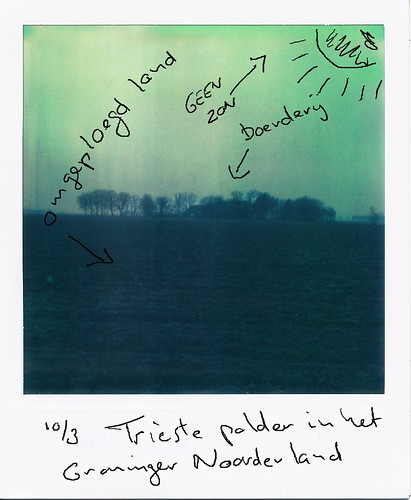 omgeploegd land
GEEN
ZON
Boerderij
10/3 Trieste polder in het
Groninger Noorderland